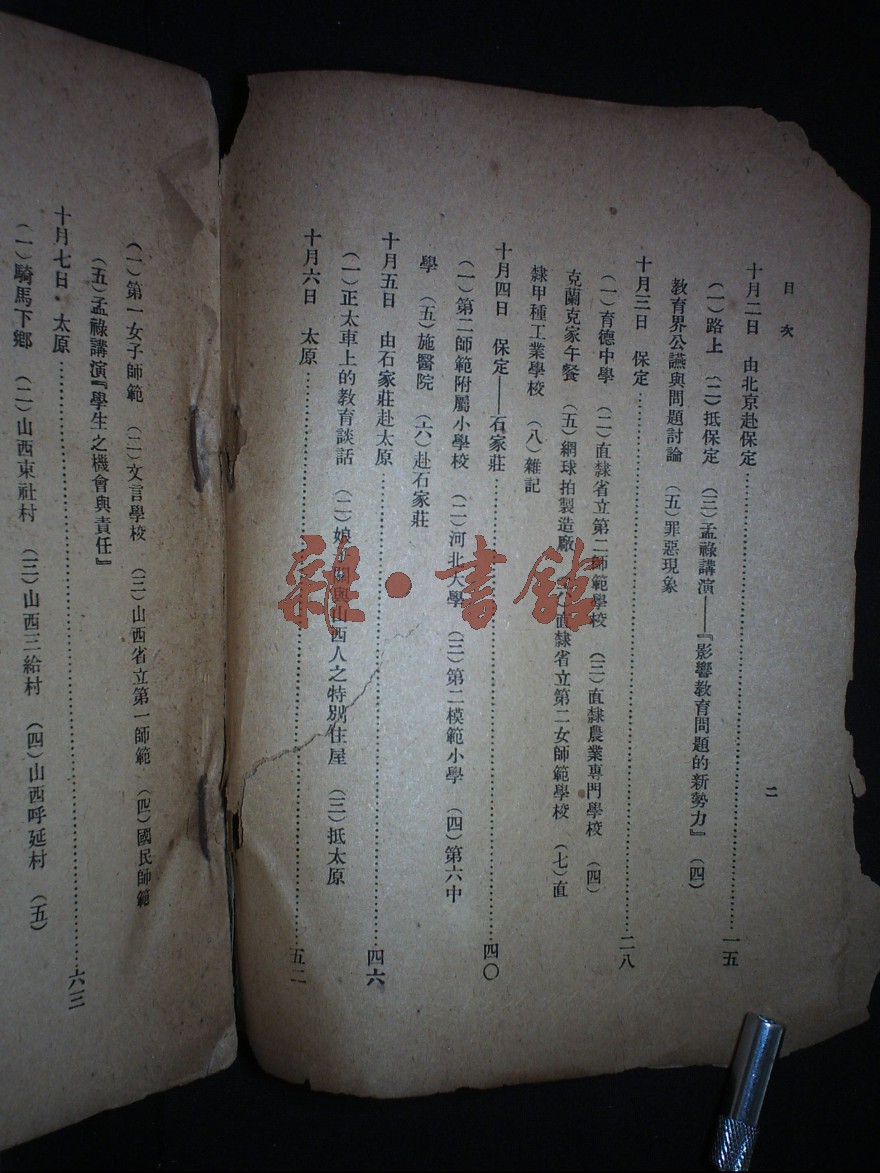 目次
二
十月二日　由北京赴保定……一五
（一）路上　（二）抵保定　（三）孟祿講演——『影響教育問題的新勢力』　（四）
教育界公讌與問題討論　（五）罪惡現象
十月三日　保定……二八
（一）育德中學　（二）直隸省立第二師範學校　（三）直隸農業專門學校　（四）
克蘭克家午餐　（五）網球拍製造廠　（六）直隸省立第二女師範學校　（七）直
隸甲種工業學校　（八）雜記
十月四日　保定——石家莊……四〇
（一）第二師範附屬小學校　（二）河北大學　（三）第二模範小學　（四）第六中
學　（五）施醫院　（六）赴石家莊
十月五日　由石家莊赴太原……四六
（一）正太車上的教育談話　（二）娘子關與山西人之特別住屋　（三）抵太原
十月六日　太原……五二
（一）第一女子師範　（二）文言學校　（三）山西省立第一師範　（四）國民師範
（五）孟祿講演『學生之機會與責任』
十月七日·太原……六三
（一）騎馬下鄉　（二）山西東社村　（三）山西三給村　（四）山西呼延村　（五）
雜·書館